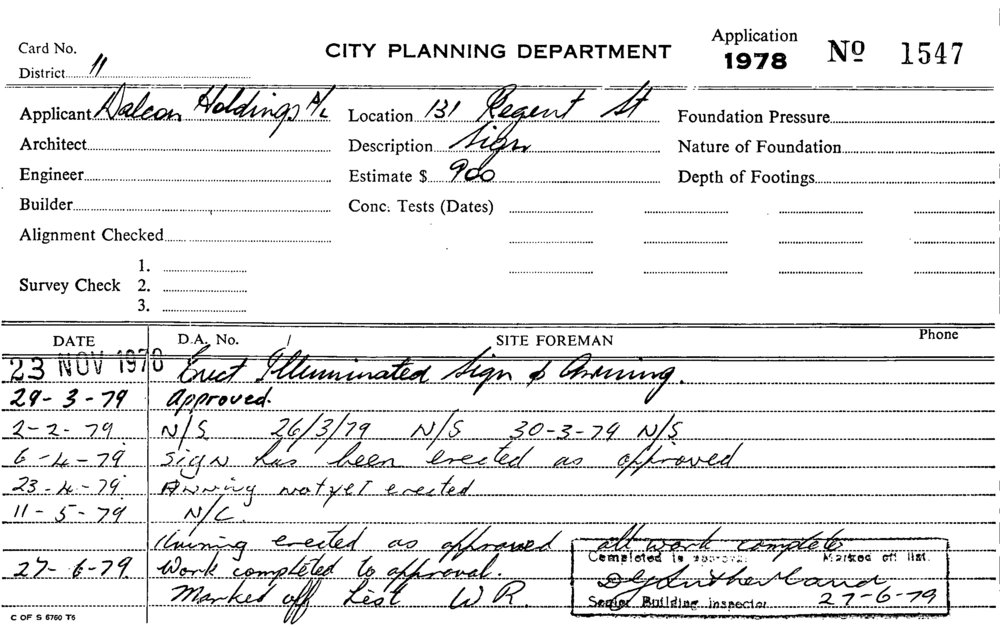 Card No.
CITY PLANNING DEPARTMENT
Application
1978
Nº 1547
District 11
Applicant Dalcon Holdings P/L
Location 131 Regent St
Foundation Pressure
Architect
Description Sign
Nature of Foundation
Engineer
Estimate $ 900
Depth of Footings
Builder
Conc. Tests (Dates)
Alignment Checked
Survey Check
1.
2.
3.
DATE D.A. No. / SITE FOREMAN Phone
23 NOV 1978 Erect Illuminated Sign & Awning.
29-3-79 Approved.
2-2-79 N/S 26/3/79 N/S 30-3-79 N/S
6-4-79 Sign has been erected as approved
23-4-79 Awning not yet erected
11-5-79 N/C.
Awning erected as approved all work complete
27-6-79. Work completed to approval.
Marked off List W R.
Completed to approval Marked off list.
D G Sutherland
Senior Building inspector 27-6-79
C OF S 6760 T6